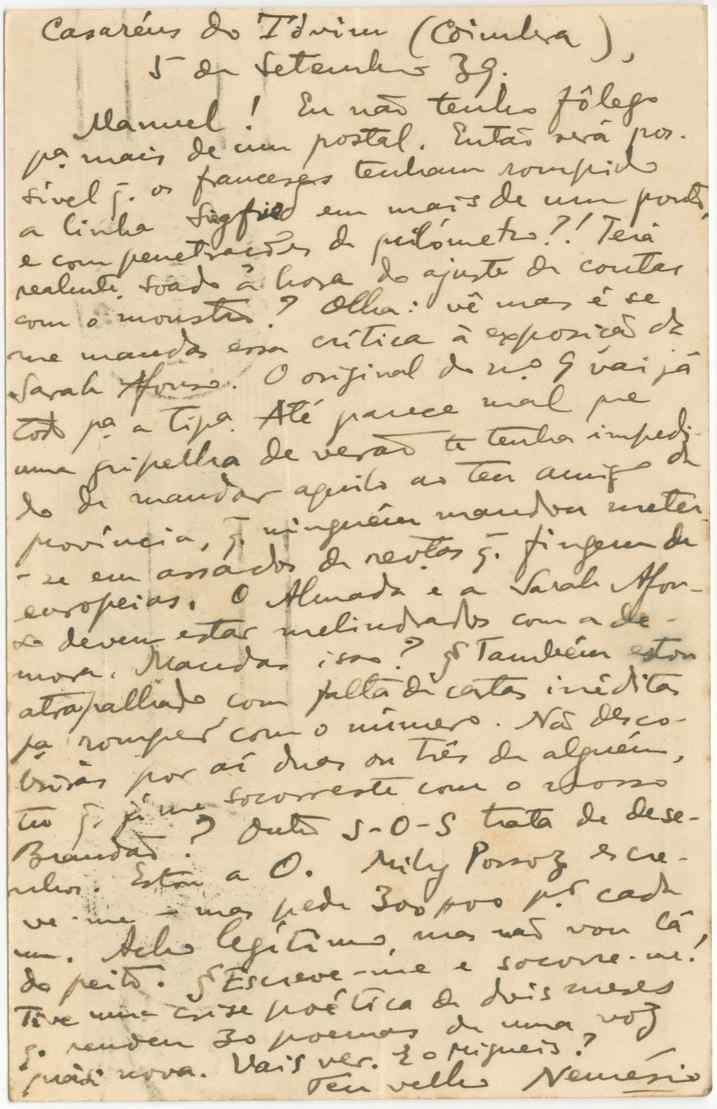 Casaréus do Tóvim (Coimbra),
5 de Setembro 39.
Manuel! Eu não tenho fôlego
pª mais de um postal. Então será pos-
sível q. os franceses tenham rompido
a linha Siegfried em mais de um ponto,
e com penetrações de quilómetro?! Terá
realmte. soado a hora do ajuste de contas
com o monstro? Olha: vê mas é se
me mandas essa crítica à exposição da
Sarah Afonso. O original do nº 9 vai já
todo pª a tipª. Até parece mal que
uma gripelha de verão te tenha impedi-
do de mandar aquilo ao teu amigo da
província, q. ninguém mandou meter-
-se em assados de revtas q. fingem de
europeias. O Almada e a Sarah Afon-
so devem estar melindrados com a de-
mora. Mandas isso? § Também estou
atrapalhado com falta de cartas inéditas
pª romper com o número. Não desco-
brirás por aí duas ou três de alguém,
tu q. já me socorreste com o nosso
Brandão? Outro S-O-S trata de dese-
nhos. Estou a O. Mily Possoz escre-
ve-me – mas pede 300$00 por cada
um. Acho legítimo, mas não vou lá
do peito. § Escreve-me e socorre-me!
Tive uma crise poética de dois meses
q. rendeu 30 poemas de uma voz
quási nova. Vais ver. E o Migueis?
Teu velho Nemésio